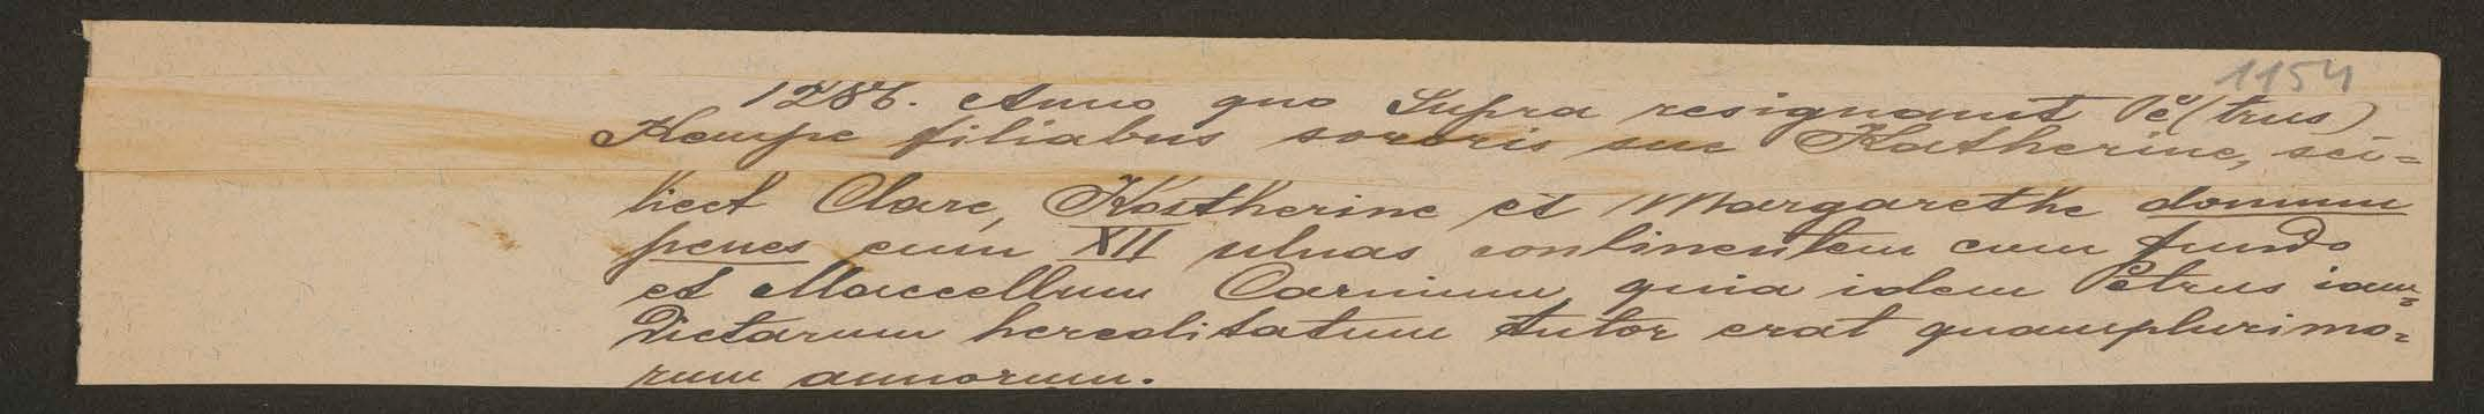 1154
1286. Anno quo Supra resignavit Pe(trus)
Kempe filiabus sororis sue Katherine, sci=
licet Clare, Katherine et Margarethe domum
penes eum XII ulnas continentem cum fundo
et Maccellum Carnium, quia idem Petrus iam=
Dictarum hereditatum tutor erat quamplurimo=
rum annorum.